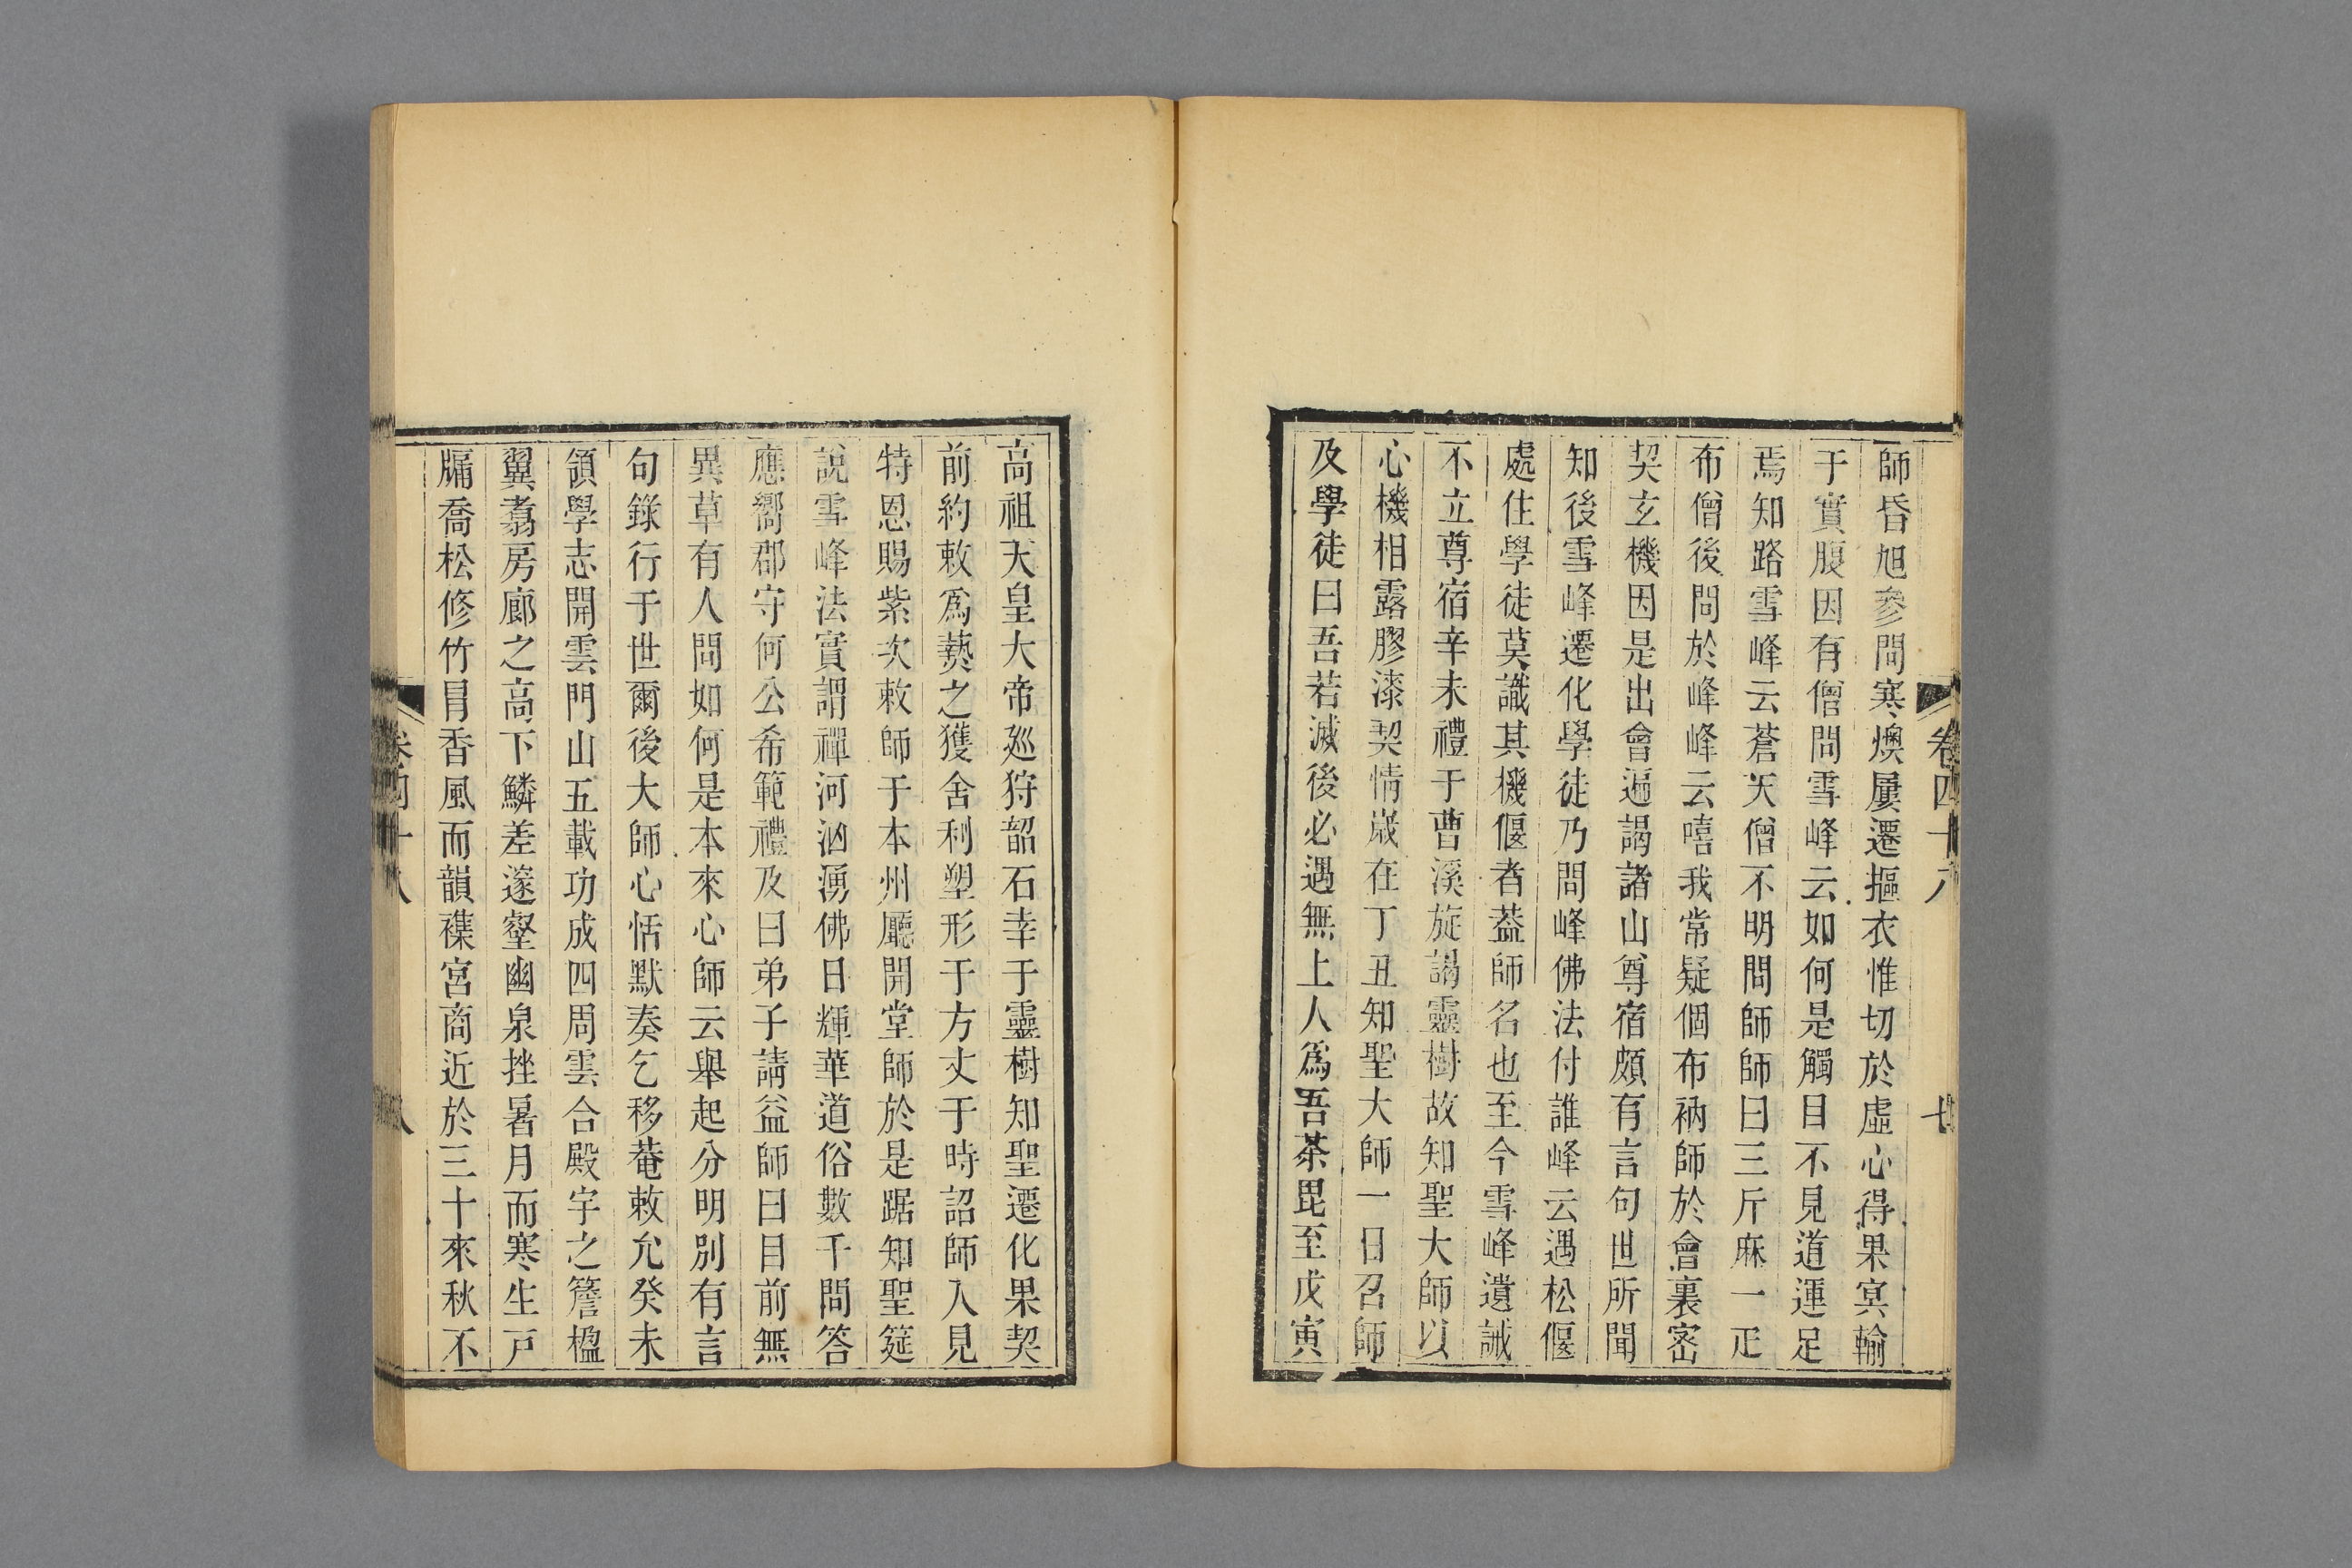 卷四十八 七
師昏旭參問寒燠屢遷摳衣惟切於虛心得果寞輸
于實腹因有僧問雪峰云如何是觸目不見道運足
焉知路雪峰云蒼天僧不明問師師曰三斤麻一疋
布僧後問於峰峰云嘻我常疑個布衲師於會裏密
契玄機因是出會遍謁諸山尊宿頗有言句世所聞
知後雪峰遷化學徒乃問峰佛法付誰峰云遇松偃
處住學徒莫識其機偃者葢師名也至今雪峰遺誡
不立尊宿辛未禮于曹溪旋謁靈樹故知聖大師以
心機相露膠漆契情嵗在丁丑知聖大師一日召師
及學徒曰吾若滅後必遇無上人爲吾茶毘至戊寅
高祖天皇大帝廵狩韶石幸于靈樹知聖遷化果契
前約敕爲爇之獲舍利塑形于方丈于時詔師入見
特恩賜紫次敕師于本州廳開堂師於是踞知聖筵
說雪峰法實謂禪河汹湧佛日輝華道俗數千問答
應嚮郡守何公希範禮及曰弟子請益師曰目前無
異草有人問如何是本來心師云舉起分明別有言
句錄行于世爾後大師心恬默奏乞移菴敕允癸未
領學志開雲門山五載功成四周雲合殿宇之簷楹
翼翥房廊之高下鱗差邃壑幽泉挫暑月而寒生戸
牖喬松修竹冐香風而韻襍宮商近於三十來秋不
卷四十八 八